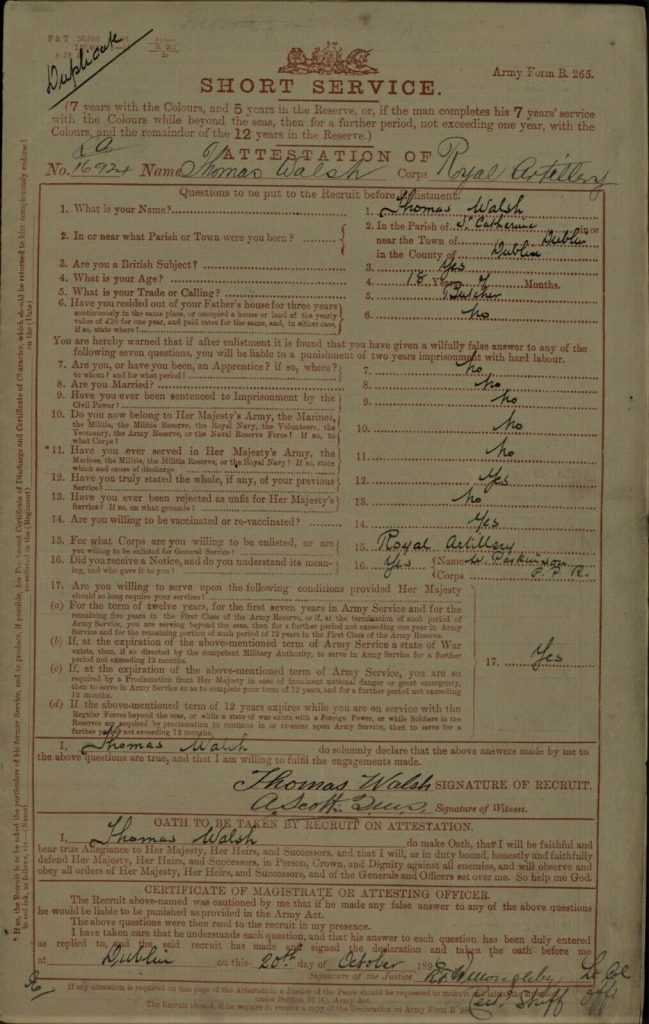 Duplicate
F & T 50,000
SHORT SERVICE.
Army Form B. 265.
(7 years with the Colours, and 5 years in the Reserve, or, if the man completes his 7 years' service
with the Colours while beyond the seas, then for a further period, not exceeding one year, with the
Colours, and the remainder of the 12 years in the Reserve.)
ATTESTATION OF
No. 16924 Name Thomas Walsh Corps Royal Artillery
Questions to be put to the Recruit before enlistment.
1. What is your Name? 1. Thomas Walsh
2. In or near what Parish or Town were you born? 2. In the Parish of St Catherine in or
near the Town of Dublin
in the County of Dublin
3. Are you a British Subject? 3. Yes
4. What is your Age? 4. 18 Years Months.
5. What is your Trade or Calling? 5. Butcher
6. Have you resided out of your Father's house for three years
continuously in the same place, or occupied a house or land of the yearly
value of £10 for one year, and paid rates for the same, and, in either case,
if so, state where? 6. No
You are hereby warned that if after enlistment it is found that you have given a wilfully false answer to any of the
following seven questions, you will be liable to a punishment of two years imprisonment with hard labour.
7. Are you, or have you been, an Apprentice? if so, where?
to whom? and for what period? 7. No
8. Are you Married? 8. No
9. Have you ever been sentenced to Imprisonment by the
Civil Power? 9. No
10. Do you now belong to Her Majesty's Army, the Marines,
the Militia, the Militia Reserve, the Royal Navy, the Volunteers, the
Yeomanry, the Army Reserve, or the Naval Reserve Force? If so, to
what Corps? 10. No
*11. Have you ever served in Her Majesty's Army, the
Marines, the Militia, the Militia Reserve, or the Royal Navy? If so, state
which and cause of discharge 11. No
12. Have you truly stated the whole, if any, of your previous
Service? 12. Yes
13. Have you ever been rejected as unfit for Her Majesty's
Service? If so, on what grounds? 13. No
14. Are you willing to be vaccinated or re-vaccinated? 14. Yes
15. For what Corps are you willing to be enlisted, or are
you willing to be enlisted for General Service? 15. Royal Artillery
16. Did you receive a Notice, and do you understand its mean-
ing, and who gave it to you? 16. Yes Name W. Parkinson
Corps
17. Are you willing to serve upon the following conditions provided Her Majesty
should so long require your services?
(a) For the term of twelve years, for the first seven years in Army Service and for the
remaining five years in the First Class of the Army Reserve, or if, at the termination of such period of
Army Service, you are serving beyond the seas, then for a further period not exceeding one year in Army
Service and for the remaining portion of such period of 12 years in the First Class of the Army Reserve.
(b) If, at the expiration of the above-mentioned term of Army Service a state of War
exists, then, if so directed by the competent Military Authority, to serve in Army Service for a further
period not exceeding 12 months.
(c) If, at the expiration of the above-mentioned term of Army Service, you are so
required by a Proclamation from Her Majesty in case of imminent national danger or great emergency,
then to serve in Army Service so as to complete your term of 12 years, and for a further period not exceeding
12 months.
(d) If the above-mentioned term of 12 years expires while you are on service with the
Regular Forces beyond the seas, or while a state of war exists with a Foreign Power, or while Soldiers in the
Reserve are required by proclamation to continue in or re-enter upon Army Service, then to serve for a
further period not exceeding 12 months.
17. Yes
I, Thomas Walsh do solemnly declare that the above answers made by me to
the above questions are true, and that I am willing to fulfil the engagements made.
Thomas Walsh SIGNATURE OF RECRUIT.
A Scott Signature of Witness.
OATH TO BE TAKEN BY RECRUIT ON ATTESTATION.
I, Thomas Walsh do make Oath, that I will be faithful and
bear true Allegiance to Her Majesty, Her Heirs, and Successors, and that I will, as in duty bound, honestly and faithfully
defend Her Majesty, Her Heirs, and Successors, in Person, Crown, and Dignity against all enemies, and will observe and
obey all orders of Her Majesty, Her Heirs, and Successors, and of the Generals and Officers set over me. So help me God.
CERTIFICATE OF MAGISTRATE OR ATTESTING OFFICER.
The Recruit above-named was cautioned by me that if he made any false answer to any of the above questions
he would be liable to be punished as provided in the Army Act.
The above questions were then read to the recruit in my presence.
I have taken care that he understands each question, and that his answer to each question has been duly entered
as replied to, and the said recruit has made and signed the declaration and taken the oath before me
at Dublin on this 20th day of October 189
Signature of the Justice
If any alteration is required on this page of the Attestation, a Justice of the Peace should be requested to make it
under Section 80 (6), Army Act.
The Recruit should, if he require it, receive a copy of the Declaration on Army Form B.